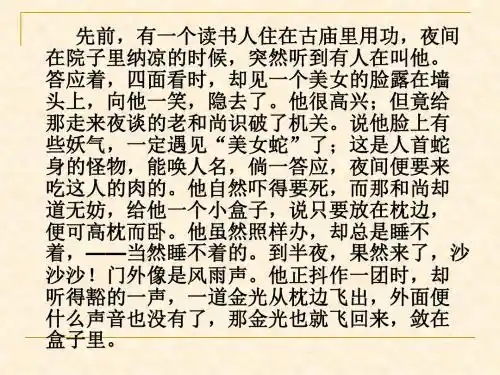 先前，有一个读书人住在古庙里用功，夜间
在院子里纳凉的时候，突然听到有人在叫他。
答应着，四面看时，却见一个美女的脸露在墙
头上，向他一笑，隐去了。他很高兴；但竟给
那走来夜谈的老和尚识破了机关。说他脸上有
些妖气，一定遇见“美女蛇”了；这是人首蛇
身的怪物，能唤人名，倘一答应，夜间便要来
吃这人的肉的。他自然吓得要死，而那和尚却
道无妨，给他一个小盒子，说只要放在枕边，
便可高枕而卧。他虽然照样办，却总是睡不
着，——当然睡不着的。到半夜，果然来了，沙
沙沙！门外像是风雨声。他正抖作一团时，却
听得豁的一声，一道金光从枕边飞出，外面便
什么声音也没有了，那金光也就飞回来，敛在
盒子里。